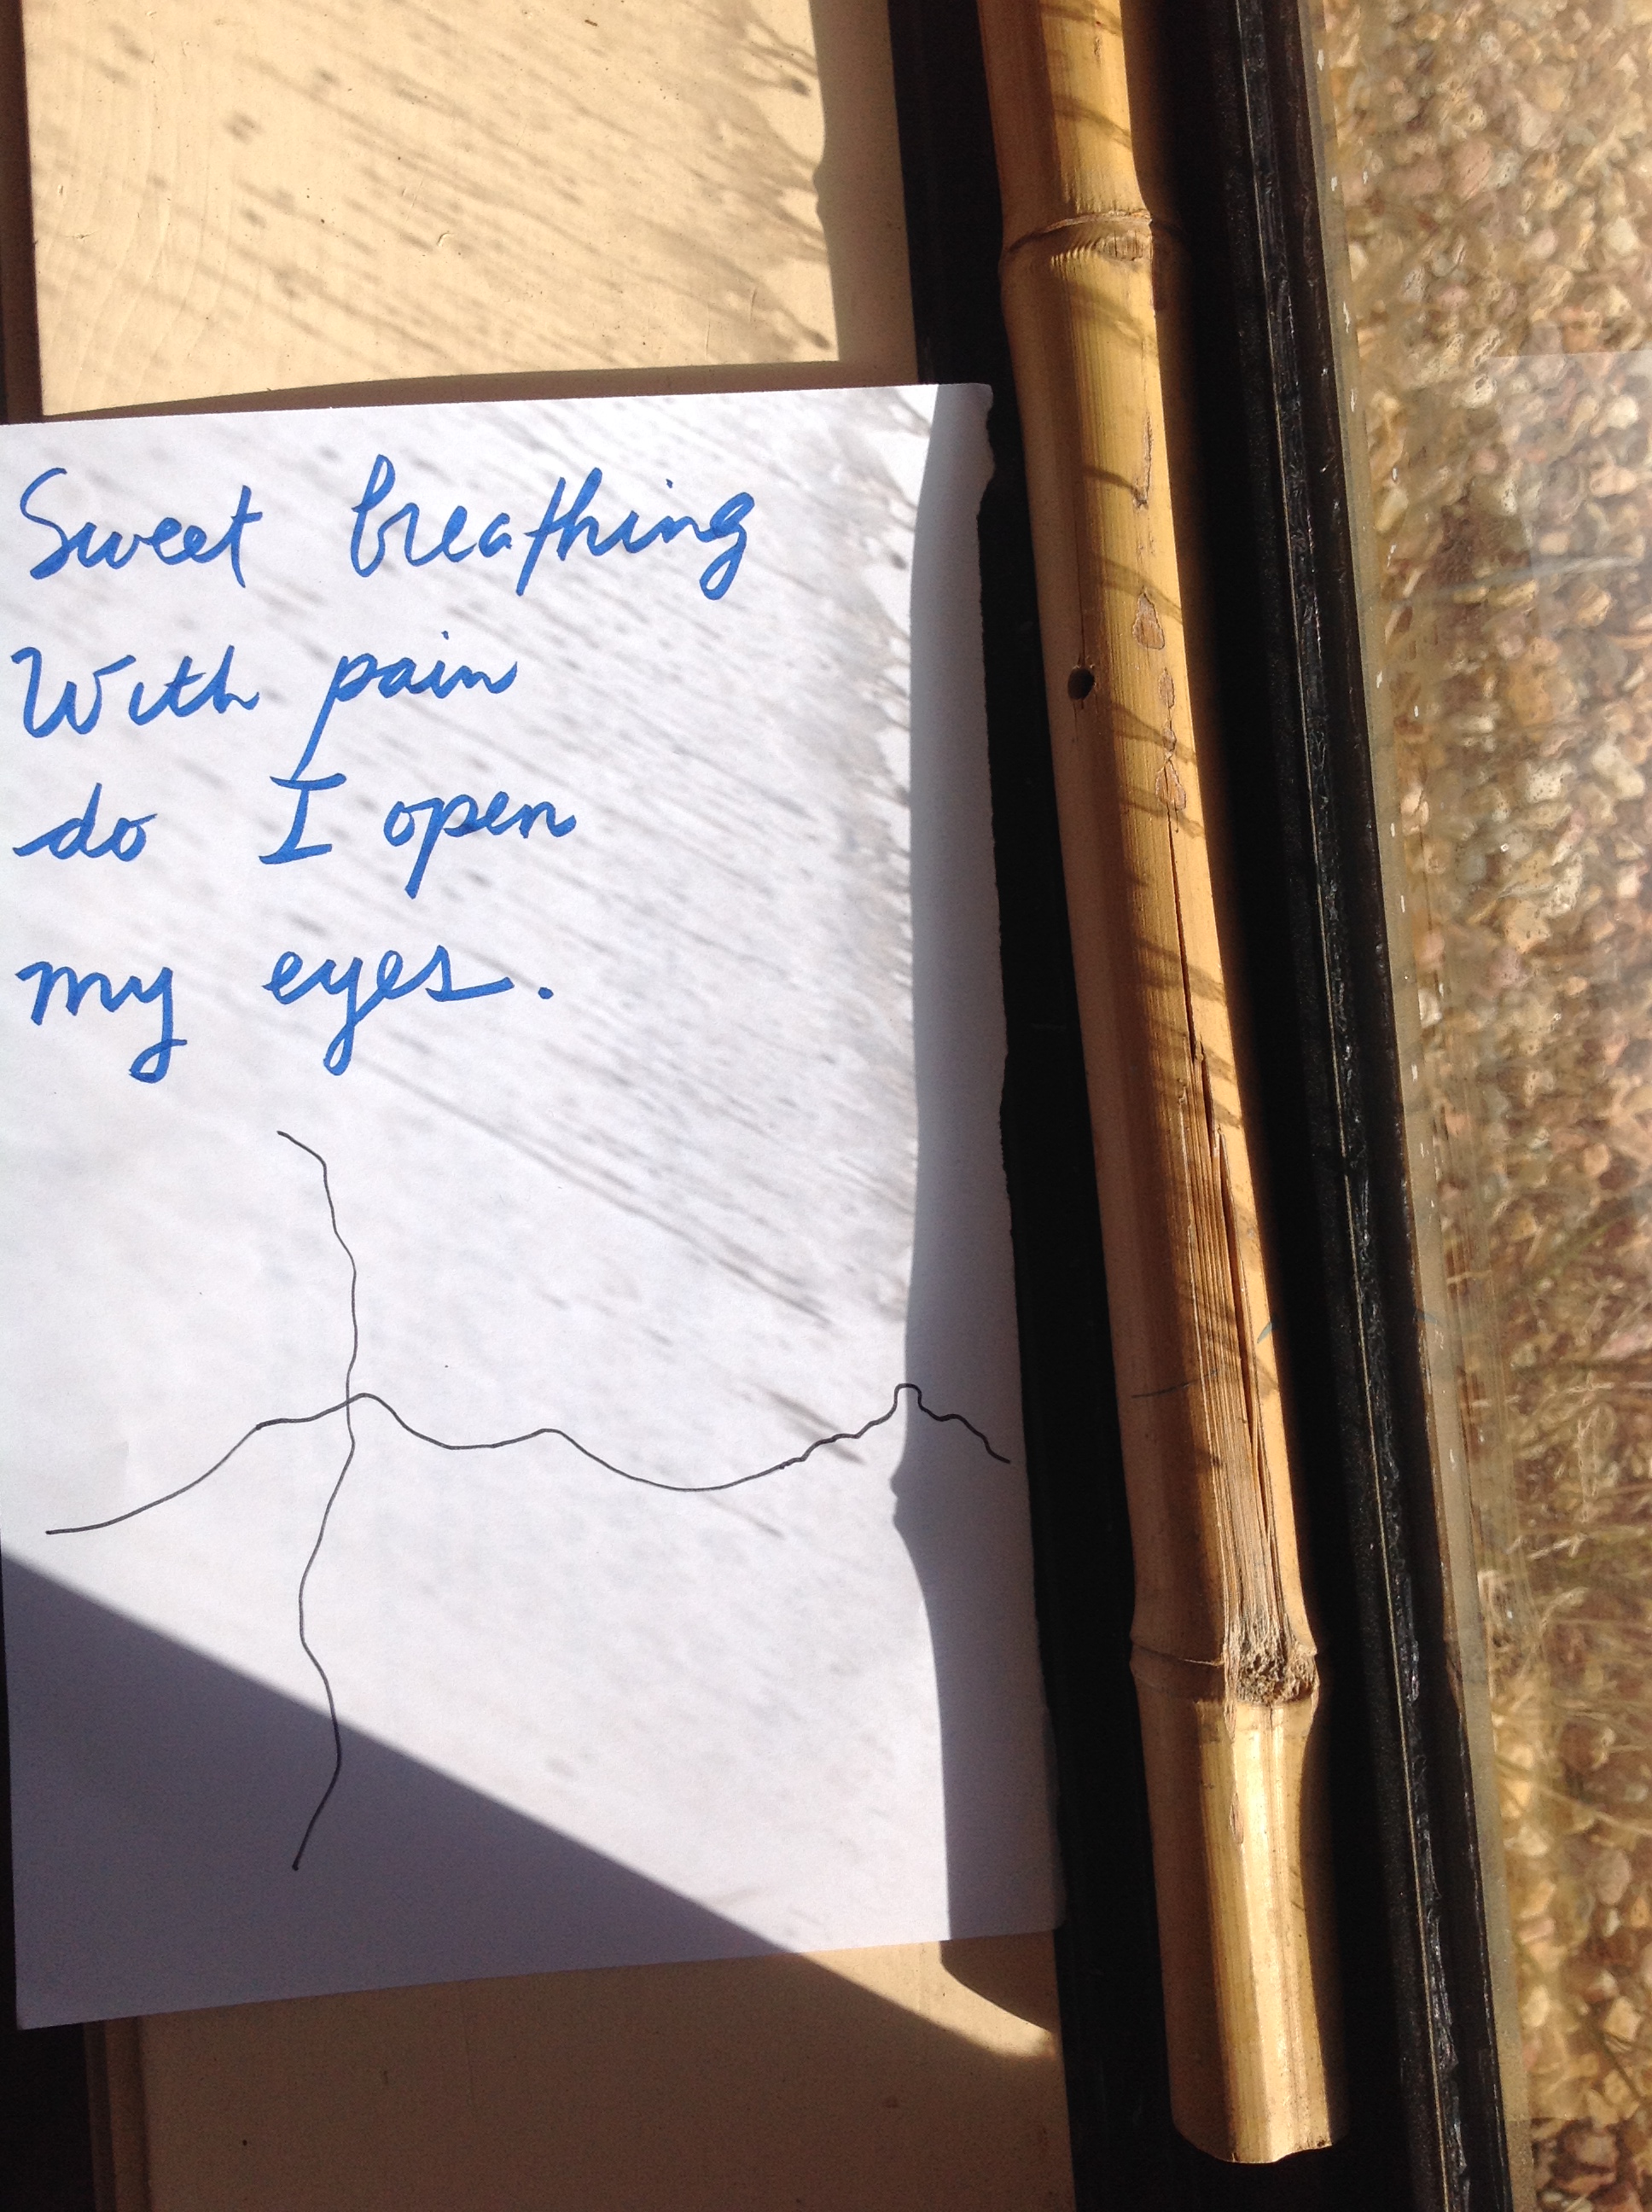 Sweet breathing
With pain
do I open
my eyes.